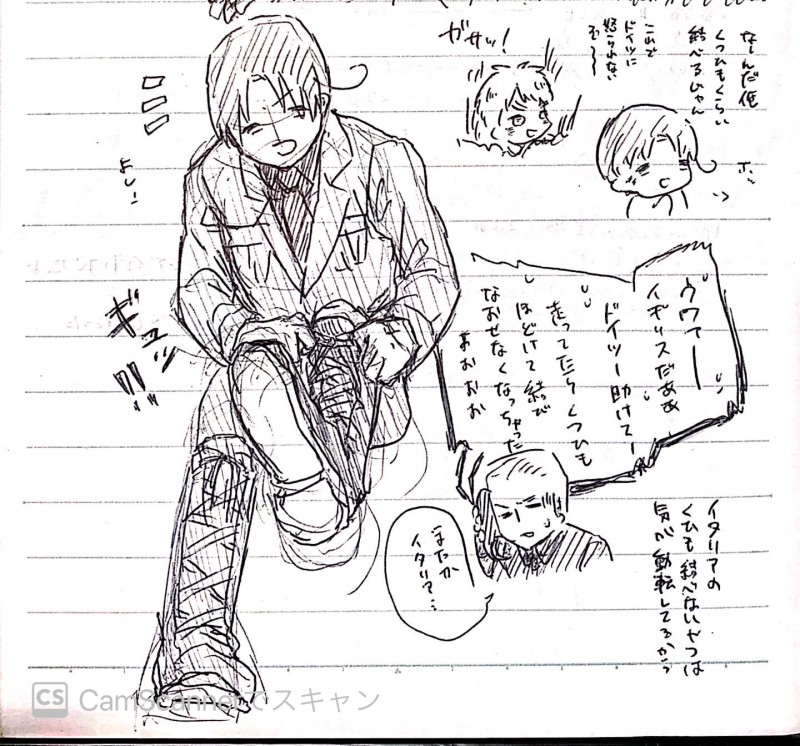 なーんだ俺
くつひもくらい
結べるじゃん
これで
ドイツに
怒られない
ぞ〜〜
ガサッ!
ホッ
よし!
ギュッ
!!
ウワァー
イギリスだああ
ドイツー助けてー
走ってたらくつひも
ほどけて結び
なおせなくなっちゃった
あおおお
またか
イタリア…
イタリアの
くつひも結べないやつは
気が動転してるから
CS CamScannerでスキャン